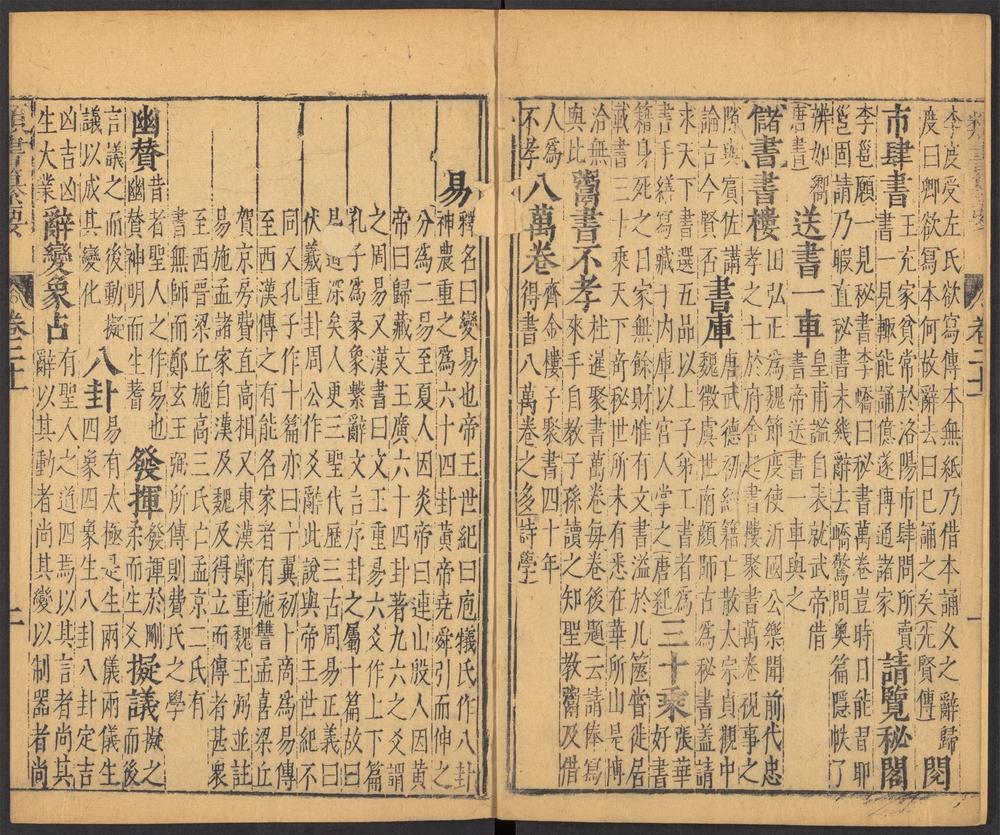 李度受左氏欲寫傳本無紙乃借本誦乂之辭歸
度曰卿欲寫本何故辭去曰巳誦之矣先賢傳
閱市肆書
王充家貧常於洛陽市肆問所賣
書一見輙能誦億遂博通諸家
請覽秘閣
李邕願一見秘書李嶠曰秘書萬卷豈時日能習耶
邕固請乃暇直秘書未幾辭去嶠驚問奥篇隱帙了
辨如嚮
唐書
送書一車
皇甫謐自表就武帝借
書帝送書一車與之
儲書
書樓
田弘正為魏節度使沂國公樂聞前代忠
孝之士於府舍起書樓聚書萬卷視事之
隙與賓佐講
論古今賢否
書庫
唐武德初經籍亡散太宗貞觀中
魏徵虞世南顔師古為秘書監請
求天下書選五品以上子弟工書者為
書手繕寫藏十内庫以宮人掌之唐紀
三十乘
張華
好書
籍身死之日家無餘財惟有文書溢於几篋嘗徙居
載書三十乘天下奇秘世所未有悉在華所山是博
洽無
與比
鬻書不孝
杜暹聚書萬卷每卷後題云請俸寫
來手自教子孫讀之知聖教鬻及借
人為
不孝
八萬卷
齊金樓子聚書四十年
得書八萬卷之多詩學
易
釋名曰變易也帝王世紀曰庖犧氏作八卦
神農重之為六十四卦黄帝堯舜引而伸之
分為二易至夏人因炎帝曰連山殷人因黄
帝曰歸藏文王廣六十四卦著九六之爻謂
之周易又漢書曰文王重易六爻作上下篇
孔子為彖象繫辭文言序卦之屬十篇故曰
易道深矣人更三聖代歷三古周易正義曰
伏羲重卦周公作爻辭此說與帝王世紀不
同又孔子作十篇亦曰十翼初卜商為易傳
至西漢傳之有能名家者有施讐孟喜梁丘
賀京房費直高相又東漢鄭重魏王弼並註
易施孟諸家自漢及魏及得立而傳者甚衆
至西晋梁丘施高三氏亡孟京二氏有
書無師而鄭玄王弼所傳則費氏之學
幽賛
昔者聖人之作易也
幽賛神明而生蓍
發揮
發渾於剛
柔而生爻
擬議
擬之
而後
言議之而後動擬
議以成其變化
八卦
易有太極是生兩儀兩儀生
四象四象生八卦八卦定吉
凶吉凶
生大業
辭變象占
有聖人之道四焉以其言者尚其
辭以其動者尚其變以制器者尚